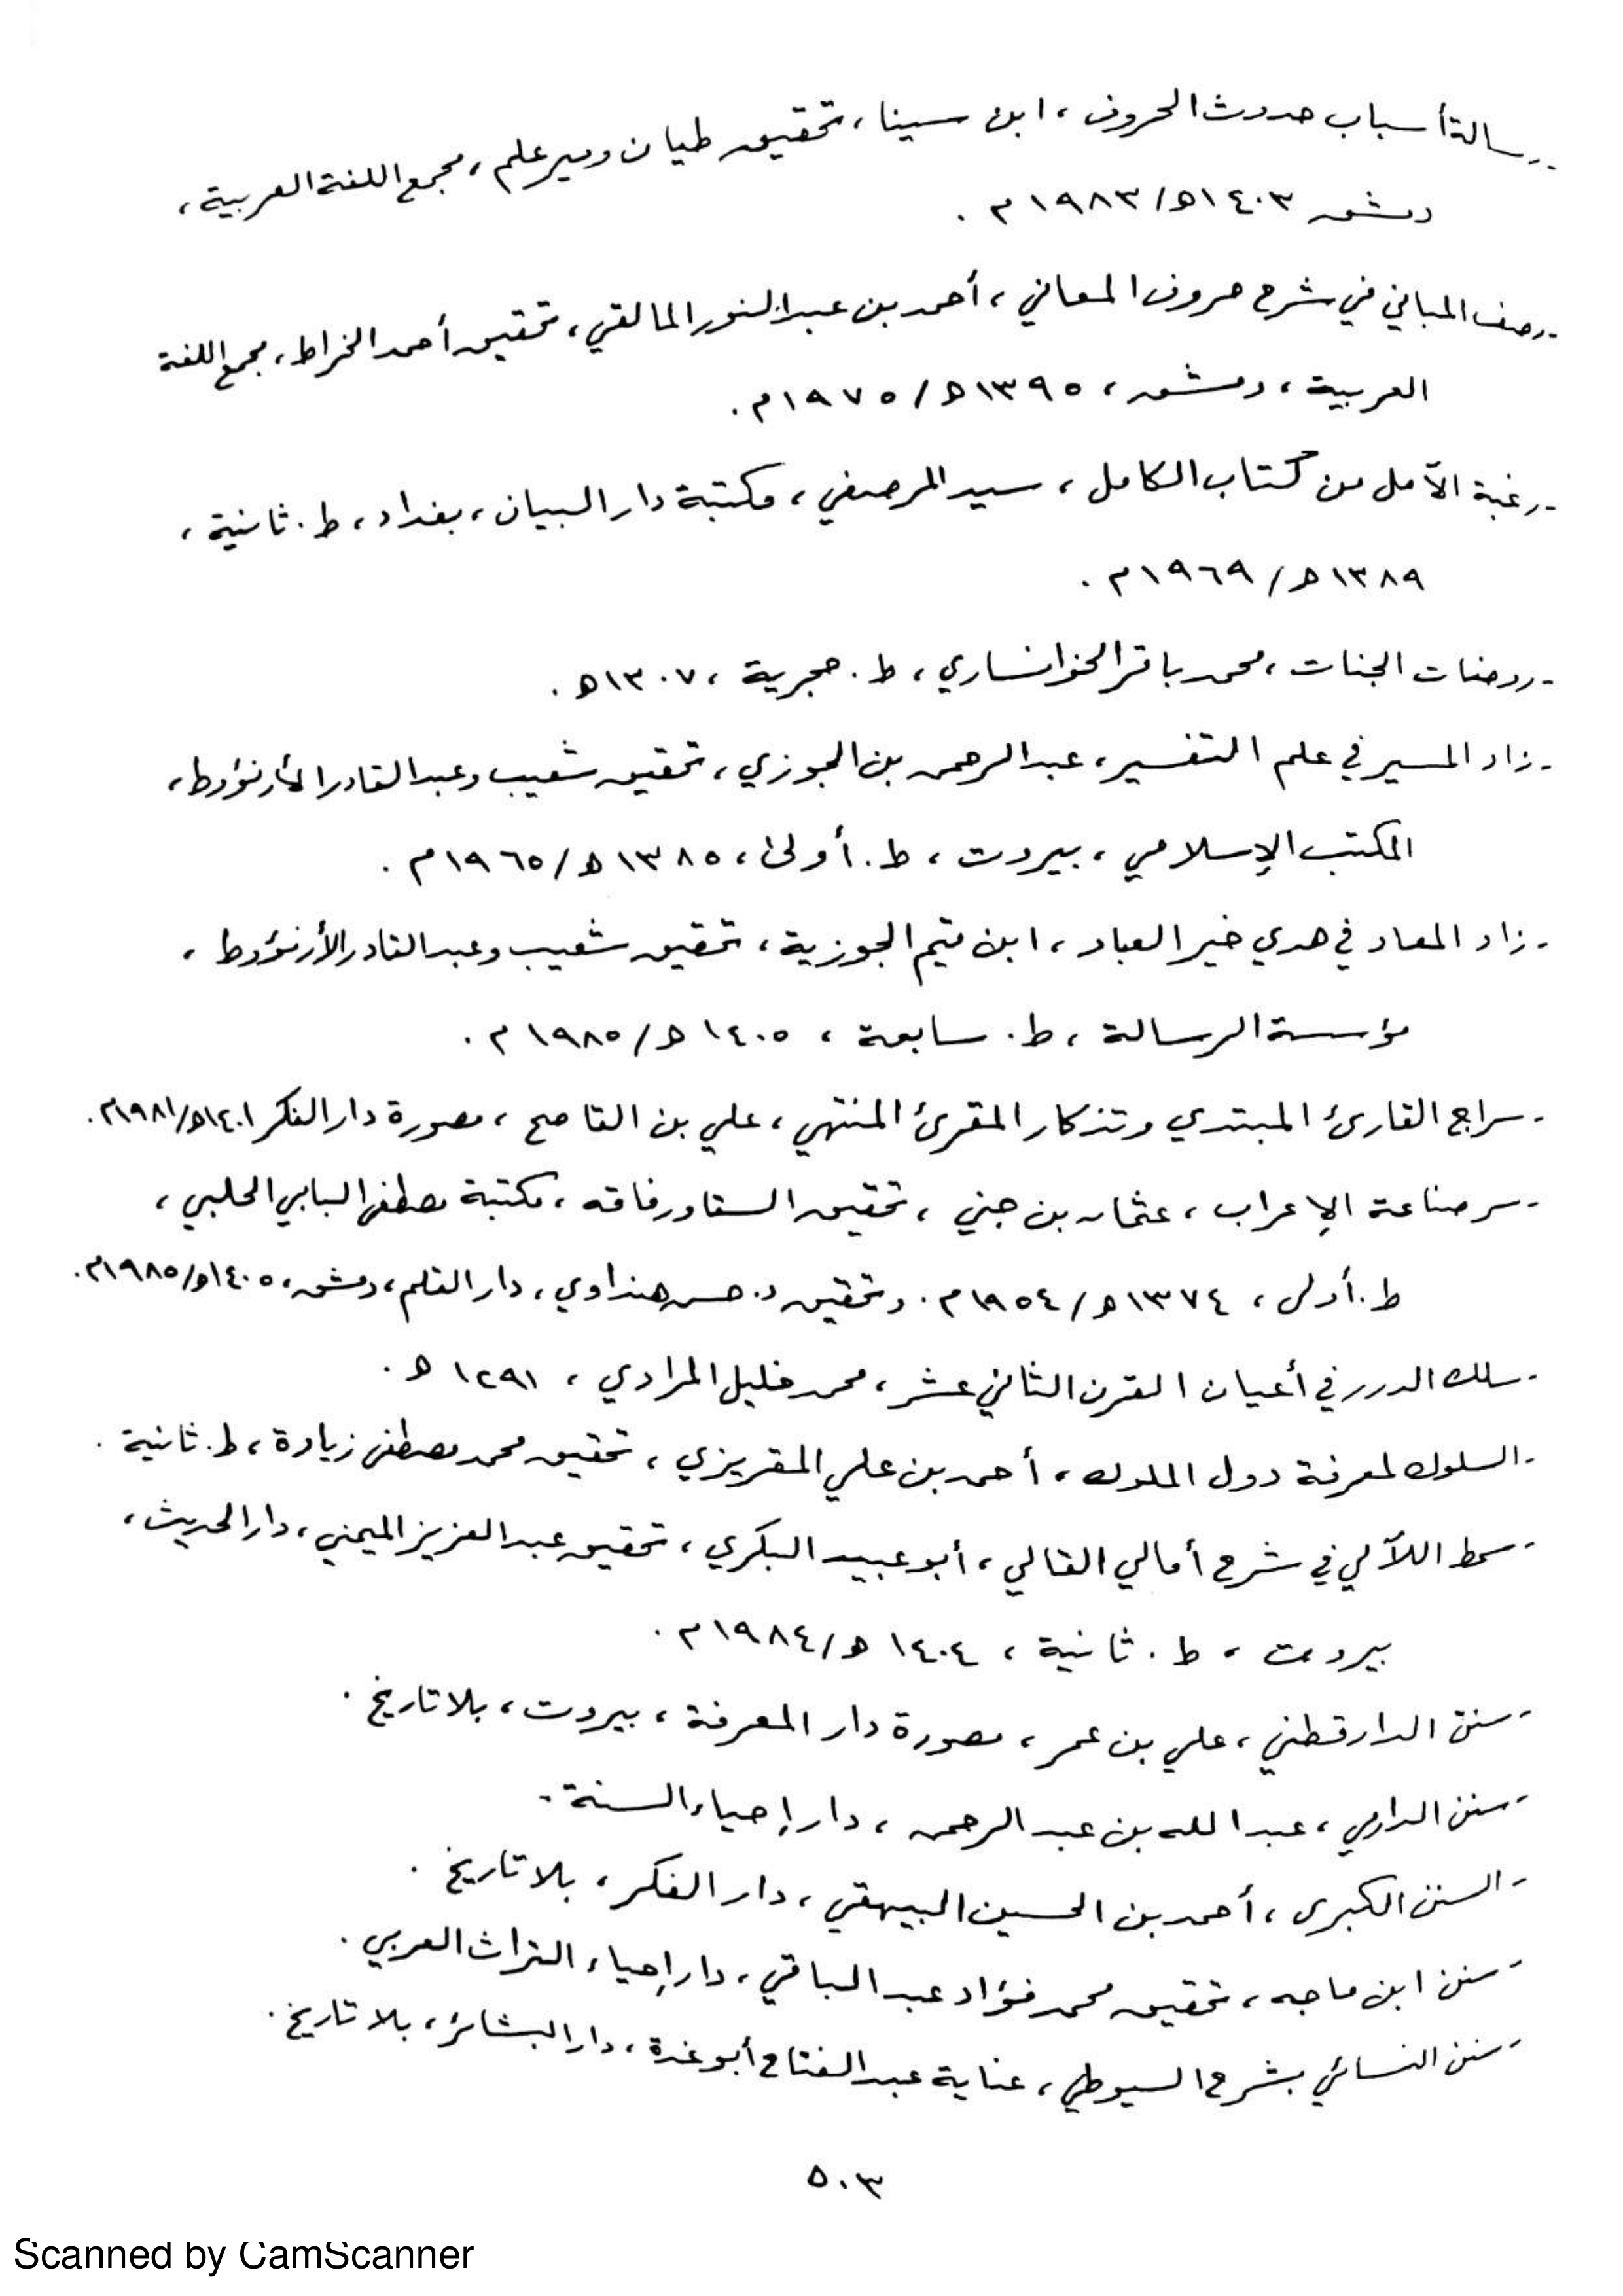 - رسالة أسباب حدوث الحروف، ابن سينا، تحقيق طيان ومير علم، مجمع اللغة العربية،
دمشق ١٤٠٣هـ/١٩٨٣م.
- رصف المباني في شرح حروف المعاني، أحمد بن عبد النور المالقي، تحقيق أحمد الخراط، مجمع اللغة
العربية، دمشق، ١٣٩٥هـ/١٩٧٥م.
- رغبة الآمل من كتاب الكامل، سيد المرصفي، مكتبة دار البيان، بغداد، ط. ثانية،
١٣٨٩هـ/١٩٦٩م.
- روضات الجنات، محمد باقر الخوانساري، ط. حجرية، ١٣٠٧هـ.
- زاد المسير في علم التفسير، عبد الرحمن بن الجوزي، تحقيق شعيب وعبد القادر الأرنؤوط،
المكتب الإسلامي، بيروت، ط. أولى، ١٣٨٥هـ/١٩٦٥م.
- زاد المعاد في هدي خير العباد، ابن قيم الجوزية، تحقيق شعيب وعبد القادر الأرنؤوط،
مؤسسة الرسالة، ط. سابعة، ١٤٠٥هـ/١٩٨٥م.
- سراج القارئ المبتدي وتذكار المقرئ المنتهي، علي بن القاصح، مصورة دار الفكر ١٤٠١هـ/١٩٨١م.
- سر صناعة الإعراب، عثمان بن جني، تحقيق السقا ورفاقه، مكتبة مصطفى البابي الحلبي،
ط. أولى، ١٣٧٤هـ/١٩٥٤م. وتحقيق د. حسن هنداوي، دار القلم، دمشق، ١٤٠٥هـ/١٩٨٥م.
- سلك الدرر في أعيان القرن الثاني عشر، محمد خليل المرادي، ١٢٩١هـ.
- السلوك لمعرفة دول الملوك، أحمد بن علي المقريزي، تحقيق محمد مصطفى زيادة، ط. ثانية.
- سمط اللآلي في شرح أمالي القالي، أبو عبيد البكري، تحقيق عبد العزيز الميمني، دار الحديث،
بيروت، ط. ثانية، ١٤٠٤هـ/١٩٨٤م.
- سنن الدارقطني، علي بن عمر، مصورة دار المعرفة، بيروت، بلا تاريخ.
- سنن الدارمي، عبد الله بن عبد الرحمن، دار إحياء السنة.
- السنن الكبرى، أحمد بن الحسين البيهقي، دار الفكر، بلا تاريخ.
- سنن ابن ماجه، تحقيق محمد فؤاد عبد الباقي، دار إحياء التراث العربي.
- سنن النسائي بشرح السيوطي، عناية عبد الفتاح أبو غدة، دار البشائر، بلا تاريخ.
٥٠٣
Scanned by CamScanner